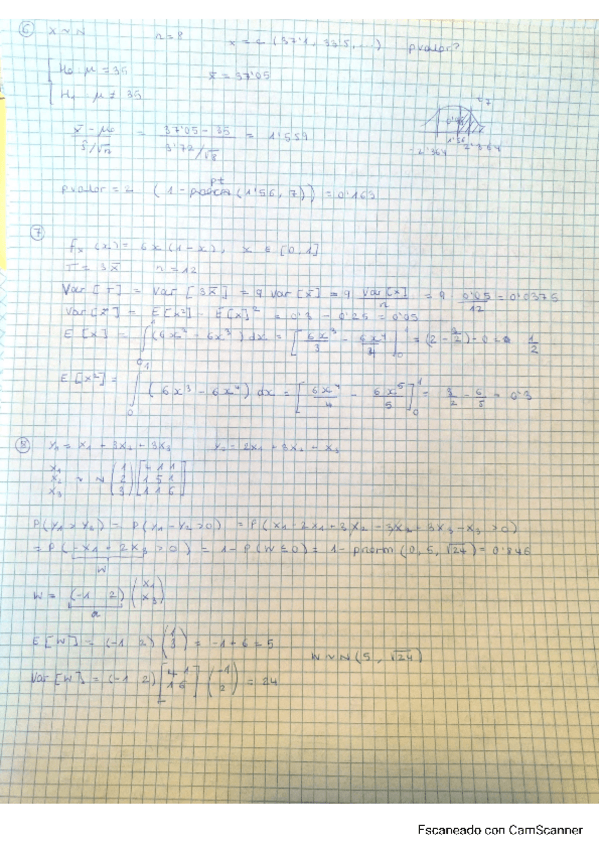 ⑥ X ~ N n=8 x = c (37'1, 33'5, ...) pvalor?
H0 μ = 35 x̄ = 37'05
H1 μ ≠ 35
x̄ - μ0 / S/√n = 37'05 - 35 / 3'72/√8 = 1'559
t7
-2'364 1'56 2'364
pvalor = 2 (1 - pt (1'56, 7)) = 0'163
⑦
fx (x) = 6x (1-x), x ∈ [0,1]
T = 3x̄ n = 12
Var [T] = Var [3x̄] = 9 Var [x̄] = 9 Var [x] / n = 9 0'05 / 12 = 0'0375
Var [x] = E[x²] - E[x]² = 0'3 - 0'25 = 0'05
E[x] = ∫ (6x² - 6x³) dx = [6x³/3 - 6x⁴/4] = (2 - 3/2) - 0 = 1/2
E[x²] = ∫ (6x³ - 6x⁴) dx = [6x⁴/4 - 6x⁵/5] = 3/2 - 6/5 = 0'3
⑧ Y1 = X1 + 3X2 + 3X3 Y2 = 2X1 + 3X2 + X3
X1 X2 X3 ~ N (1 2 3) [4 1 1 1 5 1 1 1 6]
P(Y1 > Y2) = P(Y1 - Y2 > 0) = P(X1 - 2X1 + 3X2 - 3X2 + 3X3 - X3 > 0)
= P(-X1 + 2X3 > 0) = 1 - P(W ≤ 0) = 1 - pnorm (0, 5, √24) = 0'846
W
W = (-1 2) (X1 X3)
a
E[W] = (-1 2) (1 3) = -1 + 6 = 5
W ~ N (5, √24)
Var [W] = (-1 2) [4 1 1 6] (-1 2) = 24
Escaneado con CamScanner